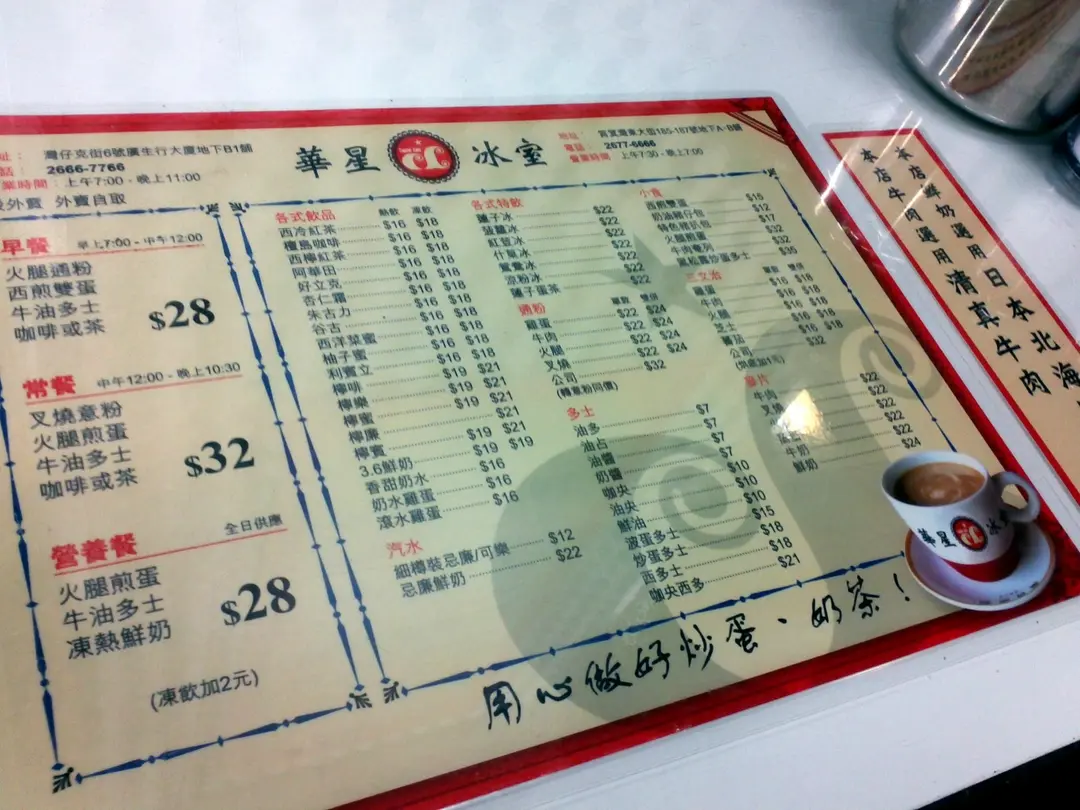 華星冰室
址： 灣仔克街6號廣生行大廈地下B1舖
話： 2666-7766
業時間： 上午7:00 - 晚上11:00
外賣 外賣自取
地址： 西灣河大街185-187號地下A-B舖
電話： 2677-6666
營業時間 上午7:30 - 晚上7:00
早餐 早上7:00 - 中午12:00
火腿通粉
西煎雙蛋
牛油多士
咖啡或茶
$28
常餐 中午12:00 - 晚上10:30
叉燒意粉
火腿煎蛋
牛油多士
咖啡或茶
$32
營養餐 全日供應
火腿煎蛋
牛油多士
凍熱鮮奶
$28
(凍飲加2元)
各式飲品 熱飲 凍飲
西冷紅茶 $16 $18
檀島咖啡 $16 $18
西檸紅茶 $16 $18
阿華田 $16 $18
好立克 $16 $18
杏仁霜 $16 $18
朱古力 $16 $18
谷古 $16 $18
西洋菜蜜 $16 $18
柚子蜜 $16 $18
利賓立 $16 $18
檸啡 $19 $21
檸樂 $19 $21
檸蜜 $19 $21
檸廉 $21
檸賓 $19 $21
3.6鮮奶 $19 $19
香甜奶水 $16
奶水雞蛋 $16
滾水雞蛋 $16
汽水
細樽裝忌廉/可樂 $12
忌廉鮮奶 $22
各式特飲
蓮子冰 $22
菠蘿冰 $22
紅豆冰 $22
什菓冰 $22
鴛鴦冰 $22
涼粉冰 $22
蓮子蛋茶 $22
通粉 單飲 雙併
雞蛋 $22 $24
牛肉 $22 $24
火腿 $22 $24
叉燒 $22 $24
公司 $32
(轉意粉同價)
多士
油多 $7
油占 $7
油醬 $7
奶醬 $7
咖央 $10
油央 $10
鮮油 $10
波蛋多士 $15
炒蛋多士 $18
西多士 $18
咖央西多 $21
小食
奶油豬仔包
特色豬扒包
火腿煎蛋
三文治
雞蛋 $16 $18
牛肉 $16 $18
火腿 $16 $18
芝士 $16 $18
蕃茄 $16 $18
公司 $32
(烘底加1元)
牛肉 $22
叉燒 $22
$22
$22
鮮奶 $24
用心做好炒蛋、奶茶！
華星冰室
本店鮮奶選用日本北海
本店牛肉選用清真牛肉